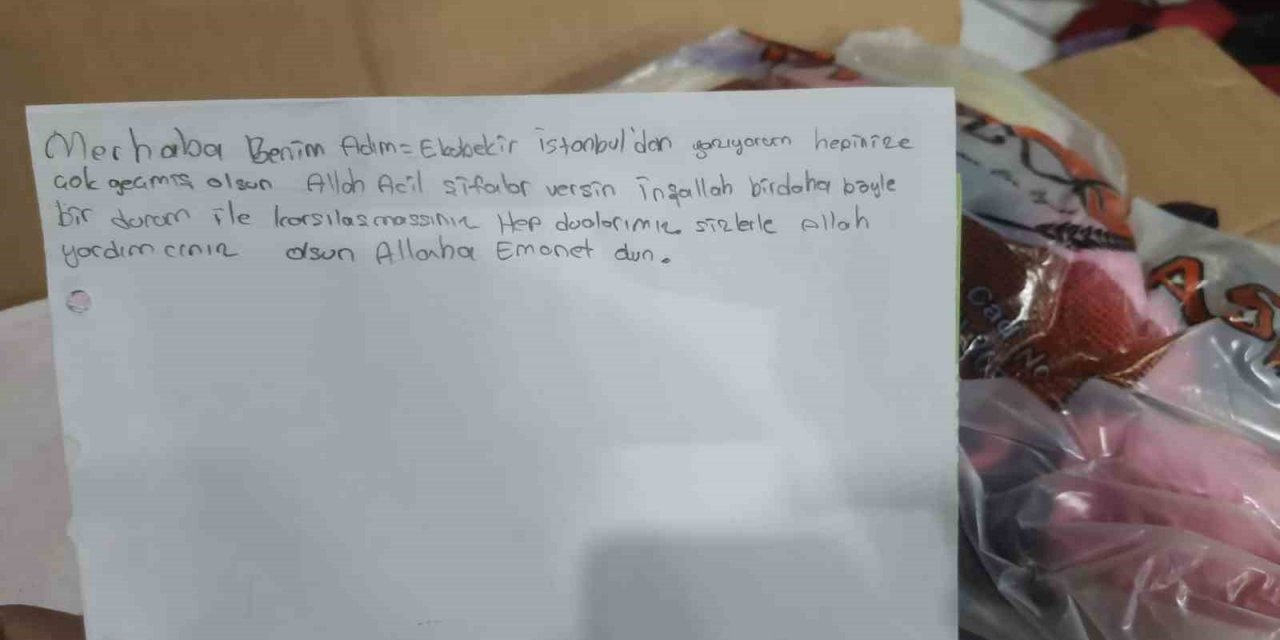 Merhaba Benim Adım= Ebubekir istanbul'dan yazıyorum hepinize
çok geçmiş olsun Allah Acil şifalar versin inşallah birdaha böyle
bir durum ile karsılasmassınız Hep dualarımız sizlerle Allah
yardımcınız olsun Allaha Emanet olun.
Cad No
AS